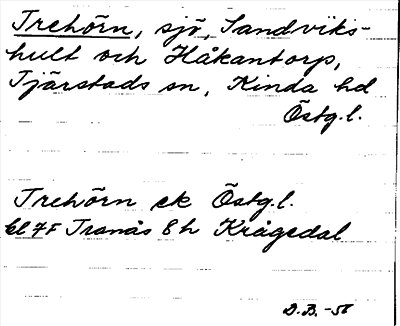 Trehörn, sjö, Sandviks-
hult och Håkantorp,
Tjärstads sn, Kinda hd
Östg.l.
Trehörn ek Östg.l.
bl 7F Tranås 8 h Krågedal
D.B. -58